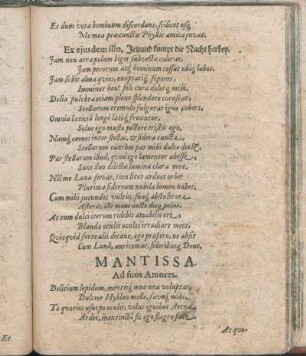 Et dum vota hominum discordant, scilicet usq;
Me mea præ cunctis Phyllis amica juvat.
Ex ejusdem illo, Jetzund kompt die Nacht herbey.
Jam nox atra polum bigis subvecta
Jam pecorum atq; hominum cessat ubiq; labor.
Jam subit alma quies,
Imminet heu! soli cura
Delia pulchra etiam pleno splendore
Stellarum tremulo fulgurat igne cohors.
Omnia lætitiâ longè latéq; fruuntur,
Solus ego mœsto pectore tristis ago.
Namq; omnes inter stellas, & sidera cuncta
Stellarum cunctûm par mihi dulce
Par stellarum illud, quod ego lamentor abesse,
Sunt duo dilectæ lumina clara meæ.
Nil me Luna juvat, toto licet ardeat orbe
Plurima sidereum nubila lumen habet.
Cum mihi jucundos vultus, suaq; abstulit ora
Asterie, illa meam nocte dieq; polus.
At cum dulce iterum ridebit amabilis ore
Blanda oculis irradiare meos,
Quicquid forte alii dicant, ego præfero, ut absit
Cum Lunâ, auricomus, sideribusq; Deus.
MANTISSA.
Ad suos Amores.
Delicium lepidum, mentisq; meæ una voluptas,
Dulcior Hyblæo melle, favoq; mihi.
Te quoties usurpo oculis, velut ignibus Aetna
Ardet, inextinctâ sic ego flagro face.
Atque
Et